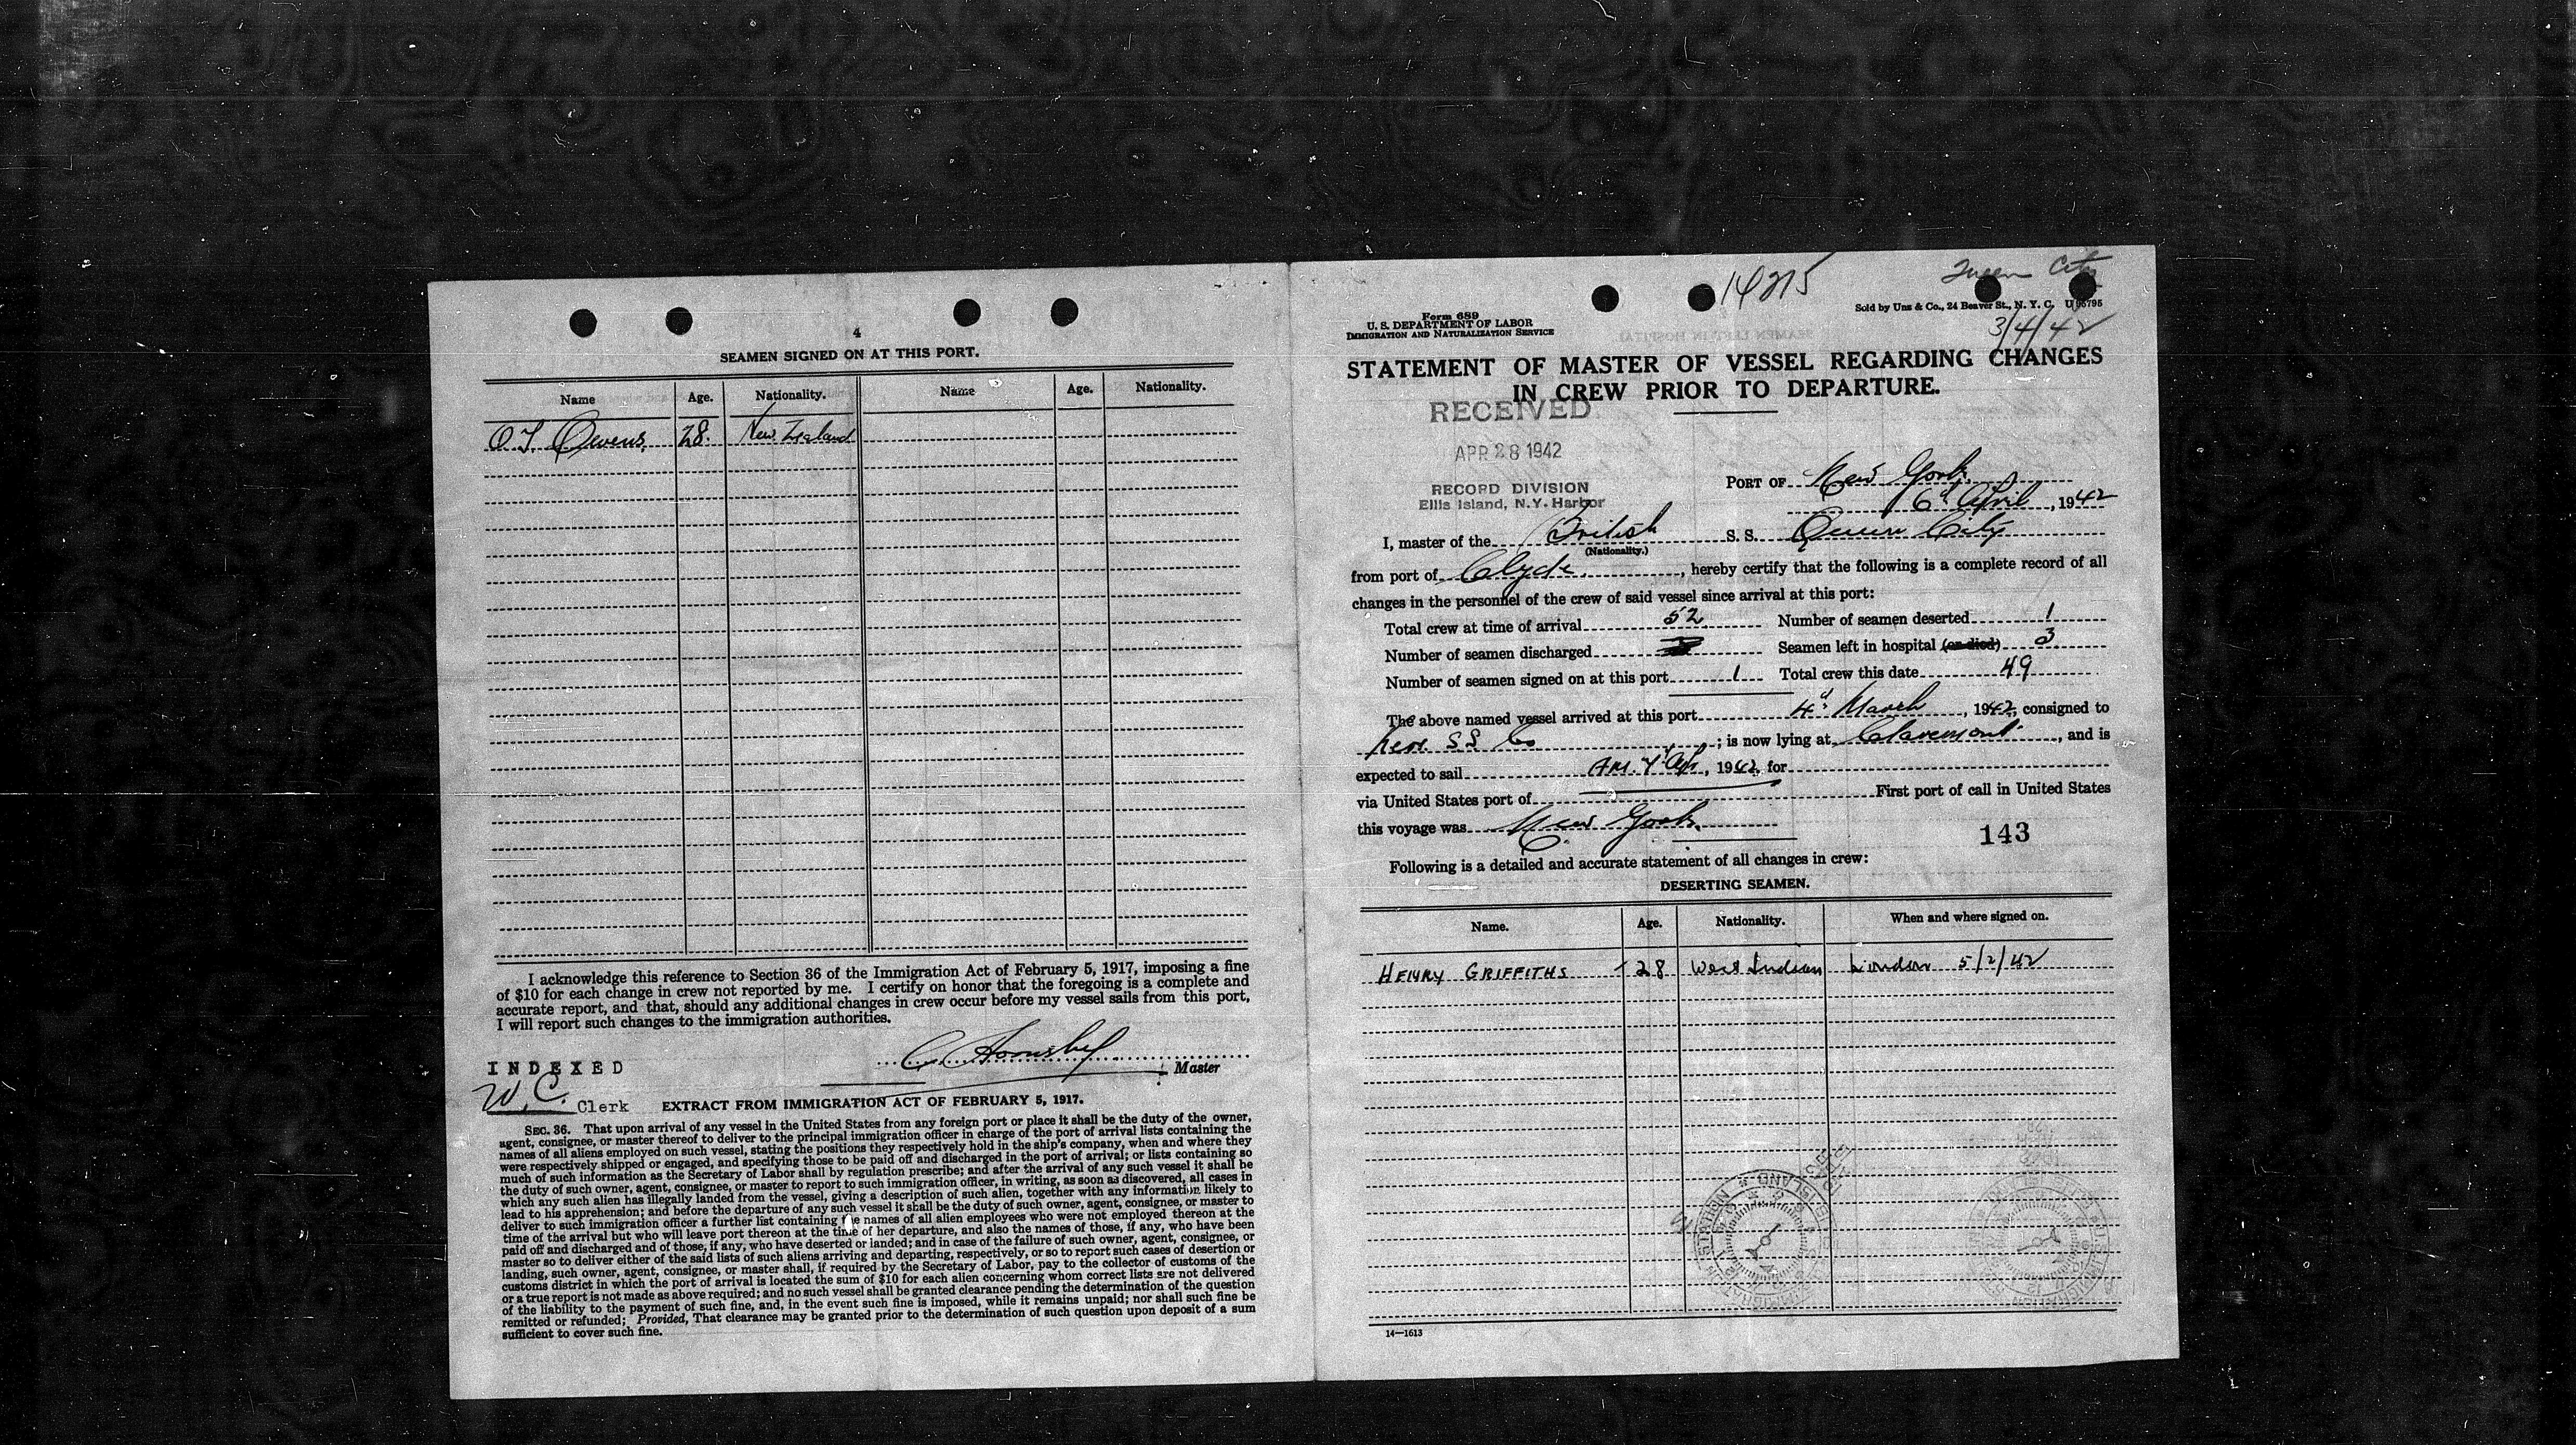 4
SEAMEN SIGNED ON AT THIS PORT.
Name Age. Nationality. Name Age. Nationality.
Owens, 28. New Zealand
I acknowledge this reference to Section 36 of the Immigration Act of February 5, 1917, imposing a fine
of $10 for each change in crew not reported by me. I certify on honor that the foregoing is a complete and
accurate report, and that, should any additional changes in crew occur before my vessel sails from this port,
I will report such changes to the immigration authorities.
C Hornsby
Master
INDEXED
W.C. Clerk
EXTRACT FROM IMMIGRATION ACT OF FEBRUARY 5, 1917.
SEC. 36. That upon arrival of any vessel in the United States from any foreign port or place it shall be the duty of the owner,
agent, consignee, or master thereof to deliver to the principal immigration officer in charge of the port of arrival lists containing the
names of all aliens employed on such vessel, stating the positions they respectively hold in the ship's company, when and where they
were respectively shipped or engaged, and specifying those to be paid off and discharged in the port of arrival; or lists containing so
much of such information as the Secretary of Labor shall by regulation prescribe; and after the arrival of any such vessel it shall be
the duty of such owner, agent, consignee, or master to report to such immigration officer, in writing, as soon as discovered, all cases in
which any such alien has illegally landed from the vessel, giving a description of such alien, together with any information likely to
lead to his apprehension; and before the departure of any such vessel it shall be the duty of such owner, agent, consignee, or master to
deliver to such immigration officer a further list containing the names of all alien employees who were not employed thereon at the
time of the arrival but who will leave port thereon at the time of her departure, and also the names of those, if any, who have been
paid off and discharged and of those, if any, who have deserted or landed; and in case of the failure of such owner, agent, consignee, or
master so to deliver either of the said lists of such aliens arriving and departing, respectively, or so to report such cases of desertion or
landing, such owner, agent, consignee, or master shall, if required by the Secretary of Labor, pay to the collector of customs of the
customs district in which the port of arrival is located the sum of $10 for each alien concerning whom correct lists are not delivered
or a true report is not made as above required; and no such vessel shall be granted clearance pending the determination of the question
of the liability to the payment of such fine, and, in the event such fine is imposed, while it remains unpaid; nor shall such fine be
remitted or refunded; Provided, That clearance may be granted prior to the determination of such question upon deposit of a sum
sufficient to cover such fine.
14215
Queen City
Form 689
U. S. DEPARTMENT OF LABOR
IMMIGRATION AND NATURALIZATION SERVICE
Sold by Unz & Co., 24 Beaver St., N. Y. C. U 95795
3/4/42
STATEMENT OF MASTER OF VESSEL REGARDING CHANGES
IN CREW PRIOR TO DEPARTURE.
RECEIVED
APR 28 1942
RECORD DIVISION
Ellis Island, N.Y. Harbor
PORT OF New York.
6th April, 1942
I, master of the British S. S. Queen City
(Nationality.)
from port of Clyde., hereby certify that the following is a complete record of all
changes in the personnel of the crew of said vessel since arrival at this port:
Total crew at time of arrival 52 Number of seamen deserted 1
Number of seamen discharged Seamen left in hospital (or died) 3
Number of seamen signed on at this port 1 Total crew this date 49
The above named vessel arrived at this port 4th March, 1942, consigned to
SS Co; is now lying at Claremont, and is
expected to sail A.M. 7th Apl, 1942, for
via United States port of First port of call in United States
this voyage was New York.
143
Following is a detailed and accurate statement of all changes in crew:
DESERTING SEAMEN.
Name. Age. Nationality. When and where signed on.
HENRY GRIFFITHS 28 West Indian London 5/2/42
14—1613